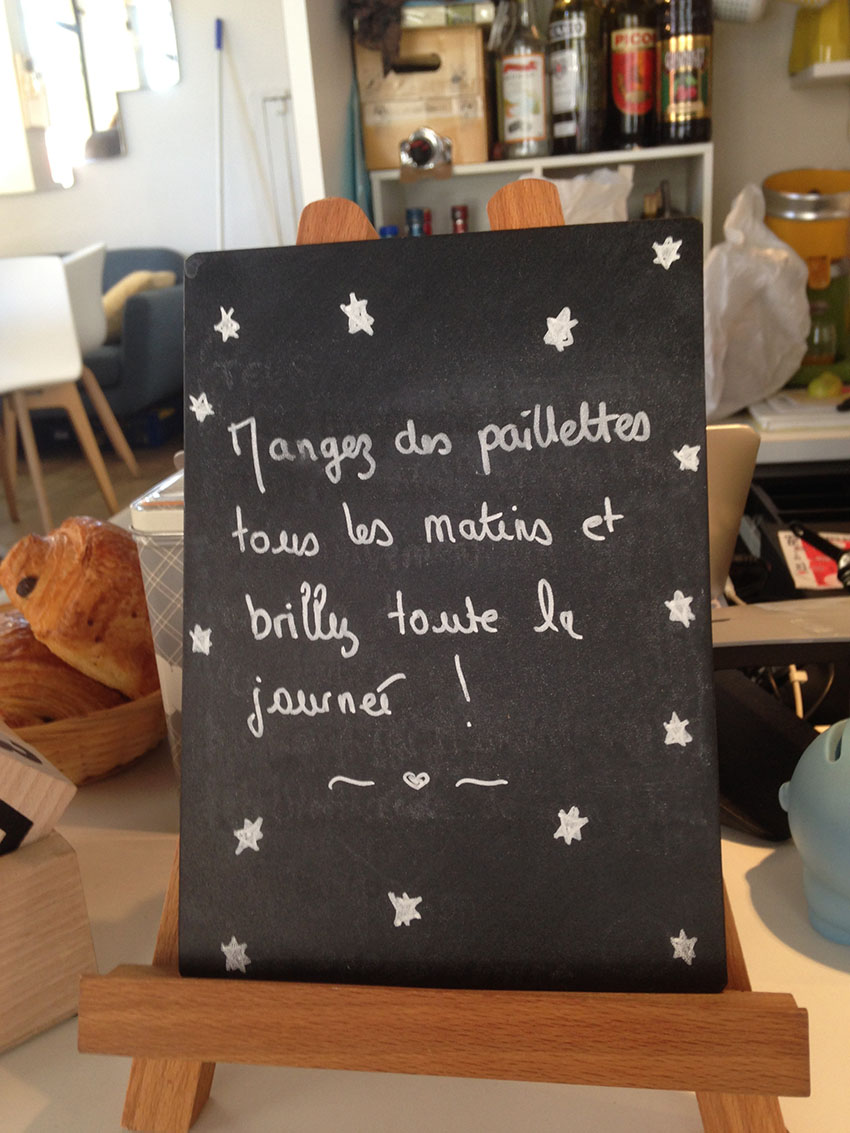 Mangez des paillettes
tous les matins et
brillez toute la
journée !
PICON